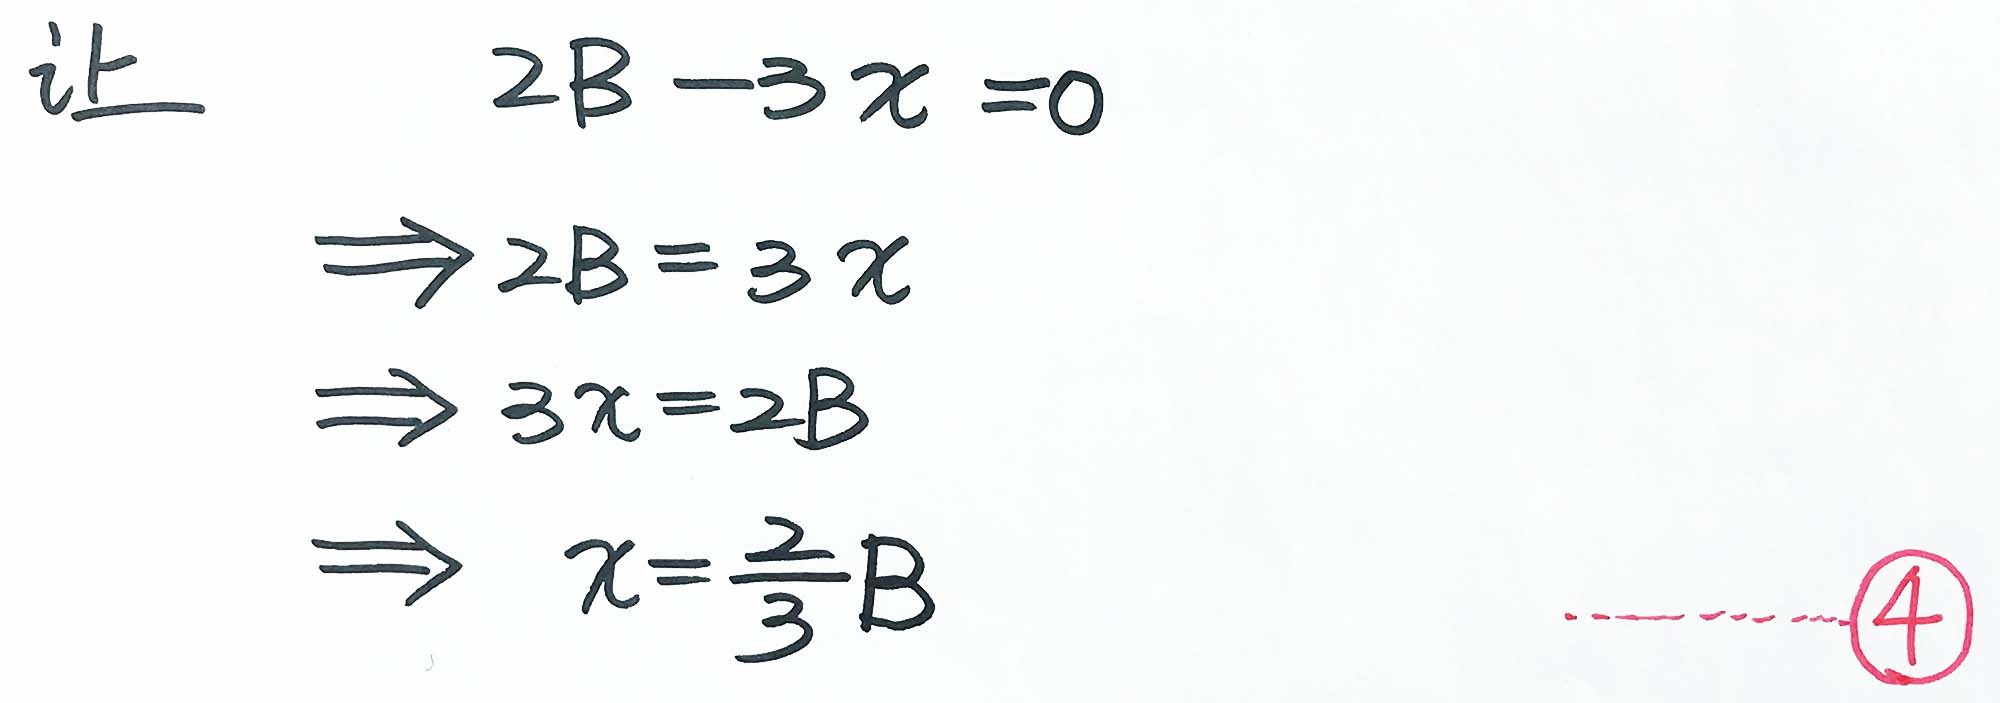 让 2B - 3x = 0
⇒ 2B = 3x
⇒ 3x = 2B
⇒ x = \frac{2}{3}B ------④